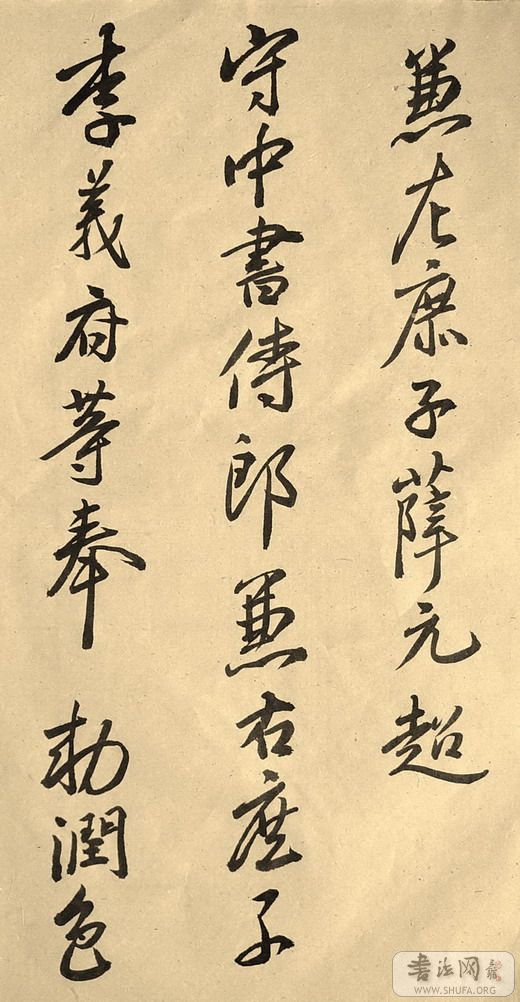 兼左庶子薛元超
守中書侍郎兼右庶子
李義府等奉 勅潤色
书法网
WWW.SHUFA.ORG